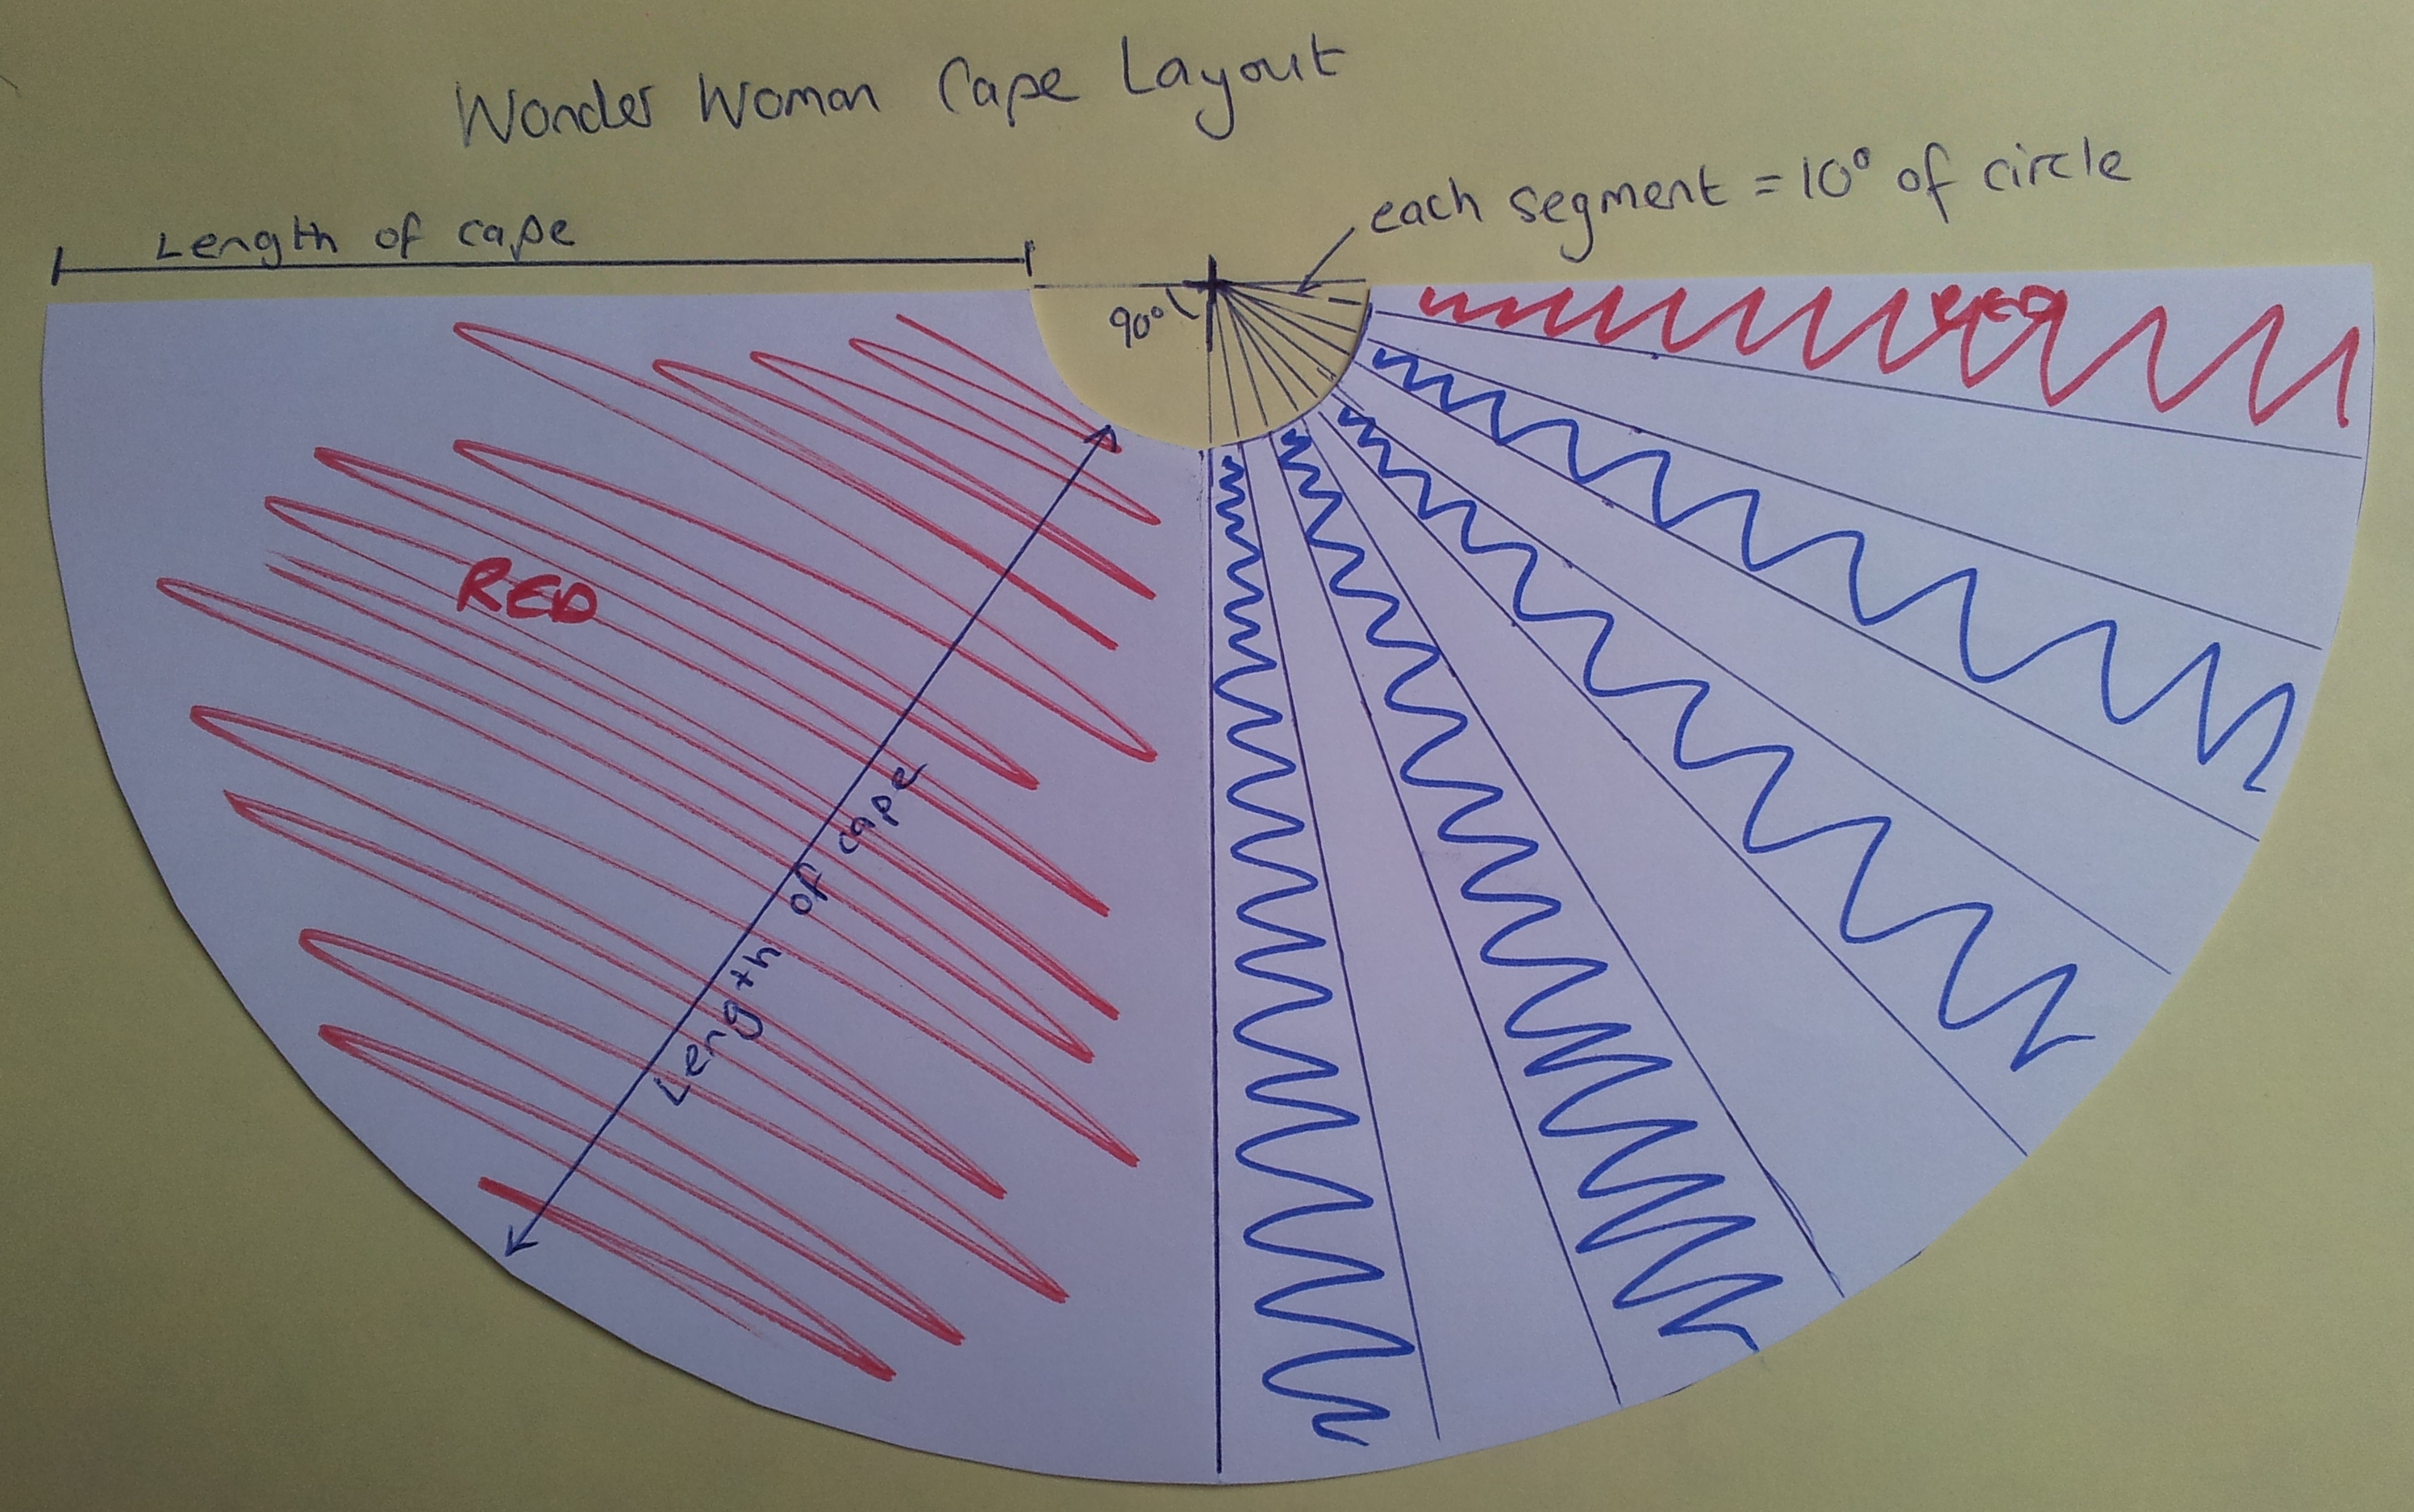 Wonder Woman Cape Layout
each segment = 10° of circle
Length of cape
90°
RED
RED
Length of cape